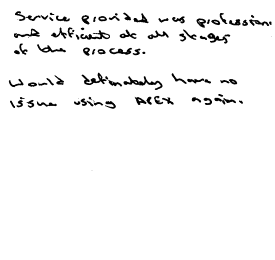 Service provided was profession
and efficient at all stages
of the process.
Would definately have no
issue using APEX again.